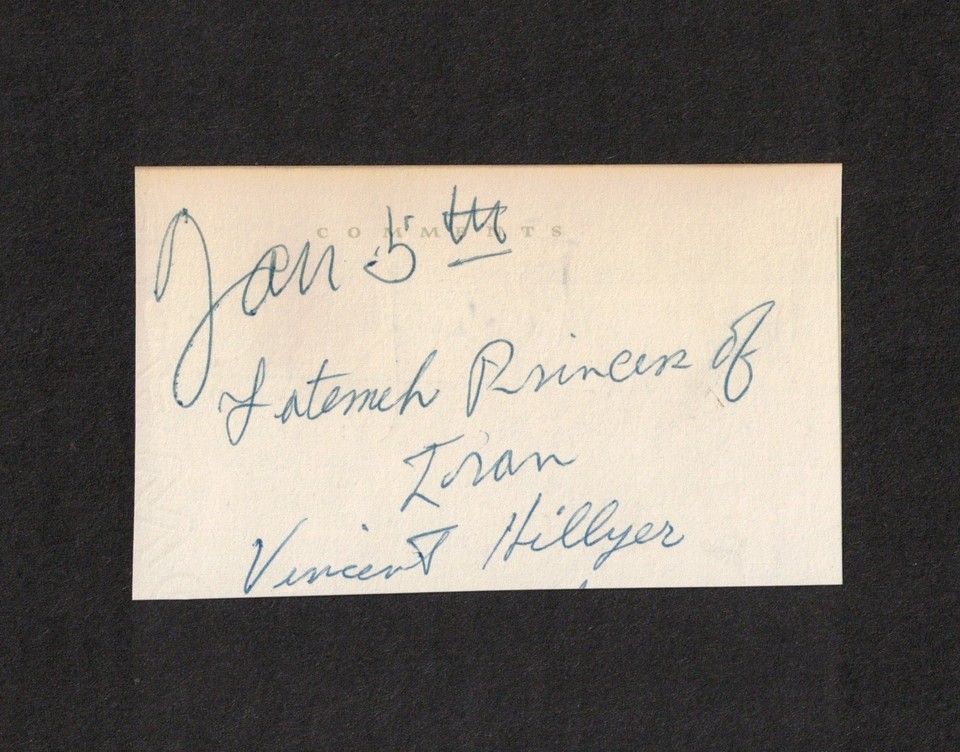 COMMENTS
Jan 5th
Fatemeh Princess of
Iran
Vincent Hillyer